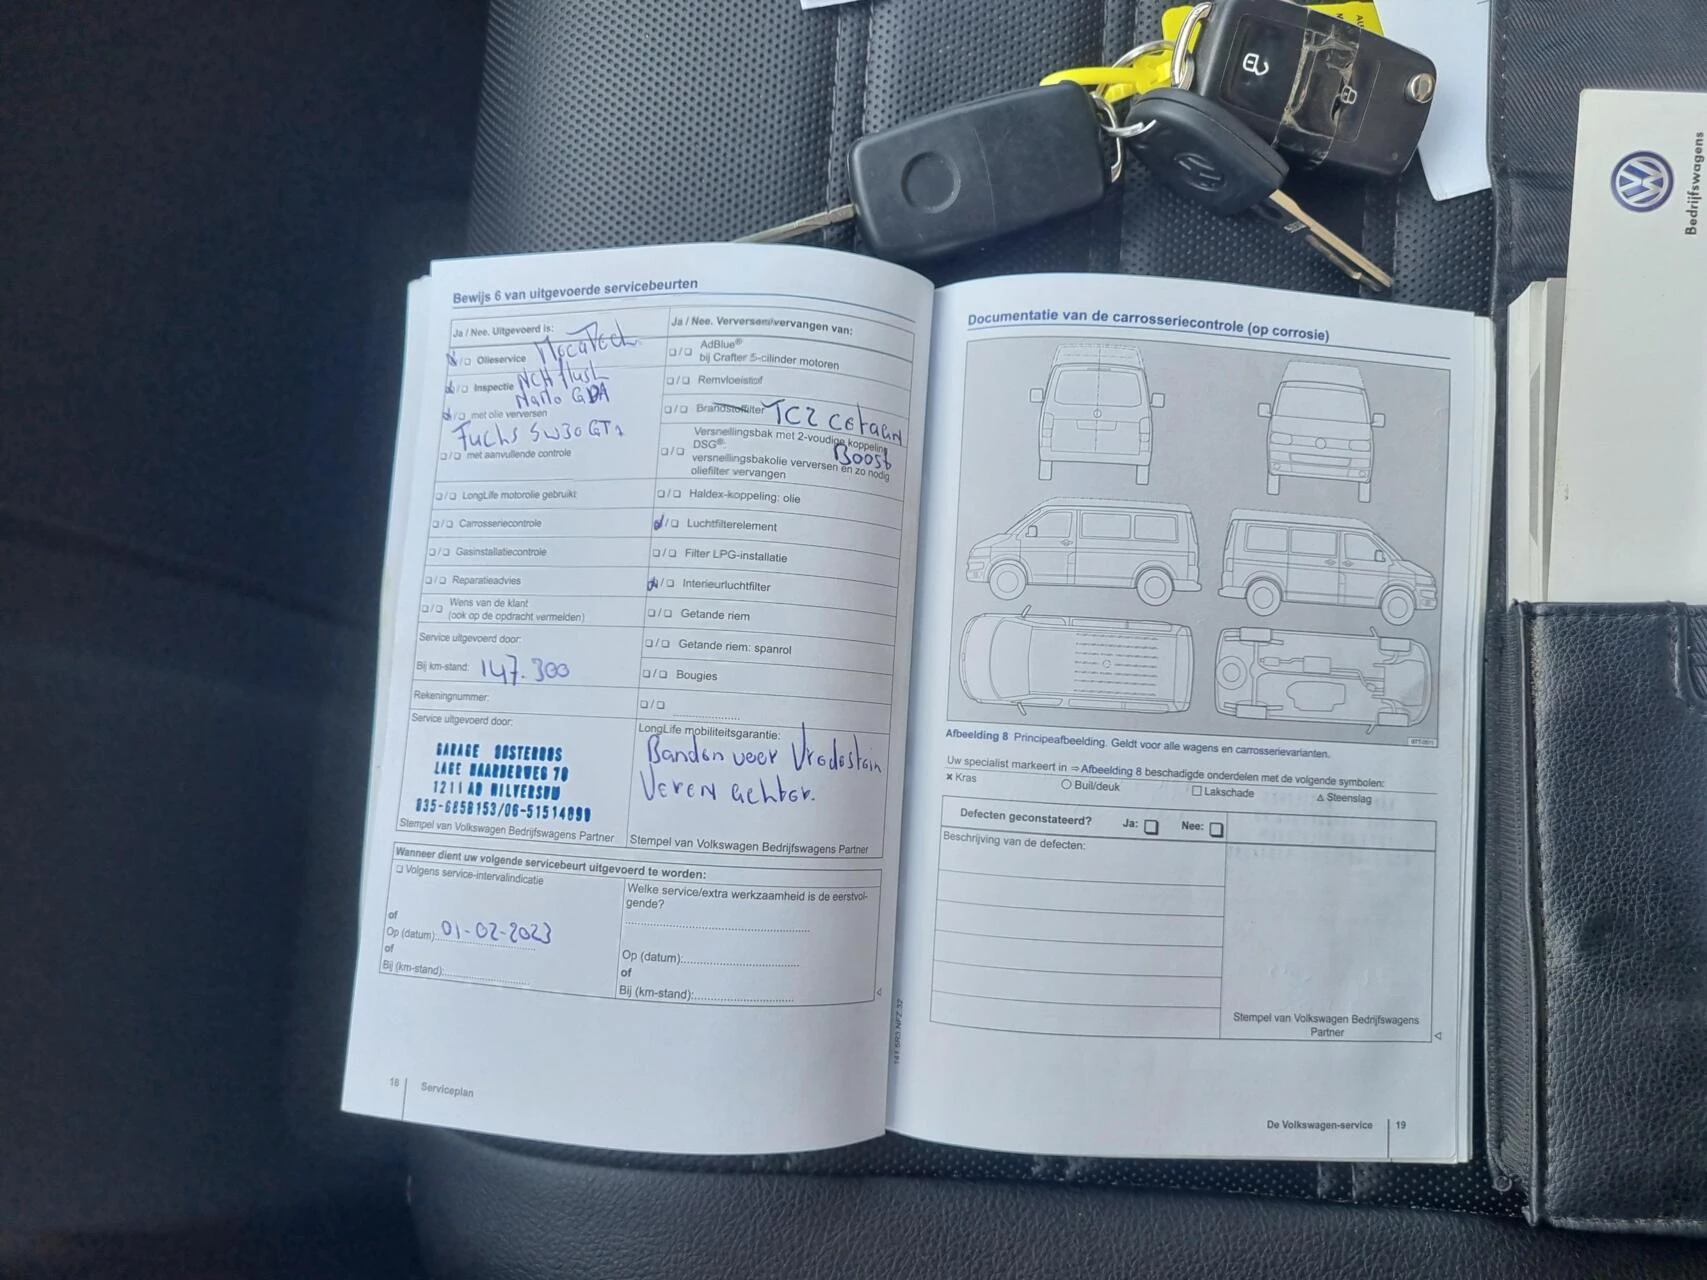 Bedrijfswagens
Bewijs 6 van uitgevoerde servicebeurten
Ja / Nee. Uitgevoerd is:
Olieservice
Inspectie NCH flush
Nano GDA
met olie verversen
Fuchs 5W30 GT1
met aanvullende controle
LongLife motorolie gebruikt
Carrosseriecontrole
Gasinstallatiecontrole
Reparatieadvies
Wens van de klant
(ook op de opdracht vermelden)
Service uitgevoerd door:
Bij km-stand: 147.300
Rekeningnummer:
Service uitgevoerd door:
GARAGE OOSTERBOS
LAGE NAARDERWEG 70
1211 AD HILVERSUM
Stempel van Volkswagen Bedrijfswagens Partner
Ja / Nee. Verversen/vervangen van:
AdBlue®
bij Crafter 5-cilinder motoren
Remvloeistof
Brandstoffilter TCZ cetaan
Boost
Versnellingsbak met 2-voudige koppeling
DSG®:
versnellingsbakolie verversen en zo nodig
oliefilter vervangen
Haldex-koppeling: olie
Luchtfilterelement
Filter LPG-installatie
Interieurluchtfilter
Getande riem
Getande riem: spanrol
Bougies
LongLife mobiliteitsgarantie:
Banden voor Vredestein
Veren achter.
Stempel van Volkswagen Bedrijfswagens Partner
Wanneer dient uw volgende servicebeurt uitgevoerd te worden:
Volgens service-intervalindicatie
of
Op (datum): 01-02-2023
of
Bij (km-stand):
Welke service/extra werkzaamheid is de eerstvol-
gende?
Op (datum):
of
Bij (km-stand):
18 Serviceplan
Documentatie van de carrosseriecontrole (op corrosie)
Afbeelding 8 Principeafbeelding. Geldt voor alle wagens en carrosserievarianten.
Uw specialist markeert in ⇒ Afbeelding 8 beschadigde onderdelen met de volgende symbolen:
× Kras ○ Buil/deuk □ Lakschade △ Steenslag
Defecten geconstateerd? Ja: □ Nee: □
Beschrijving van de defecten:
Stempel van Volkswagen Bedrijfswagens
Partner
De Volkswagen-service 19